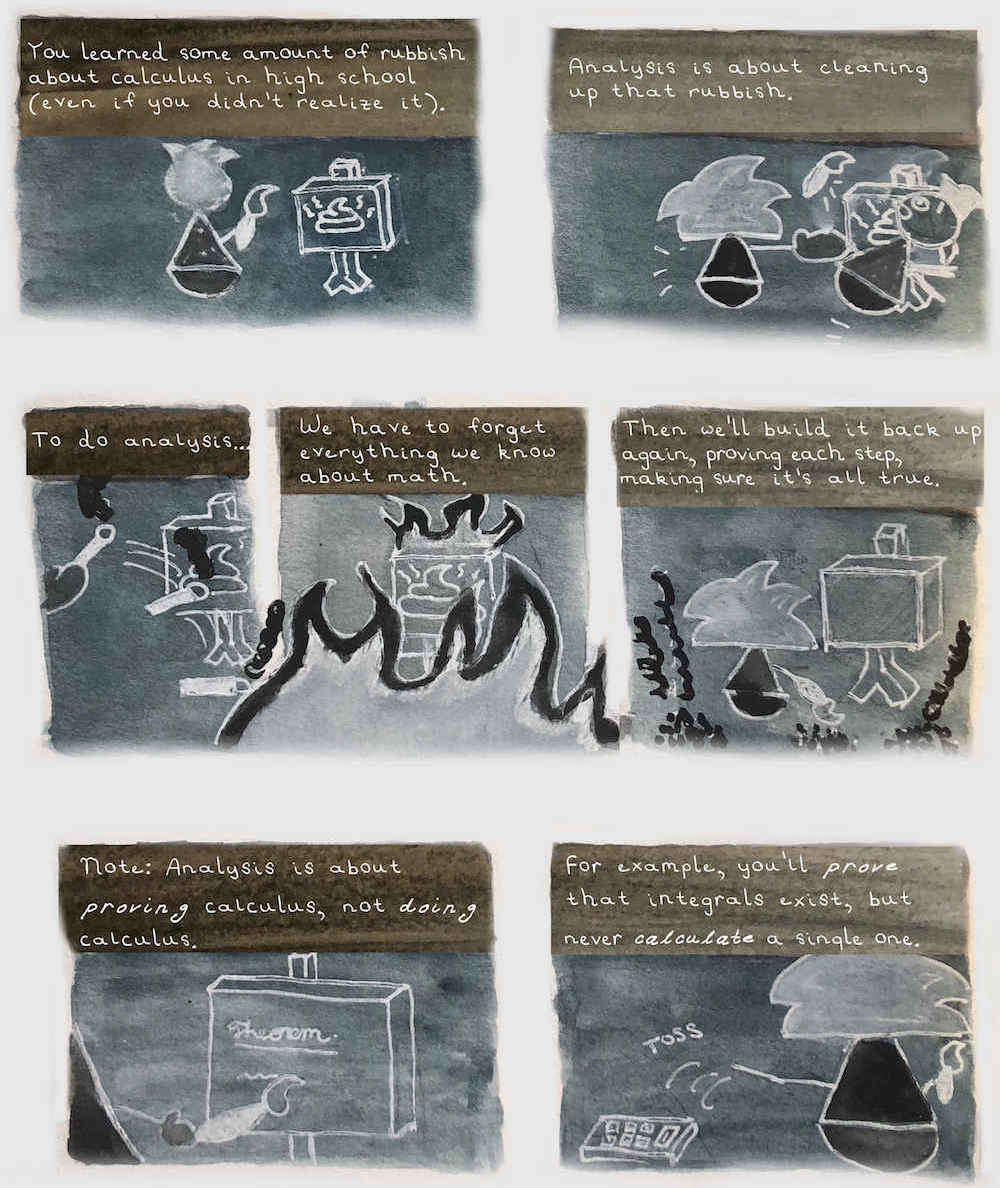 You learned some amount of rubbish
about calculus in high school
(even if you didn't realize it).
Analysis is about cleaning
up that rubbish.
To do analysis...
We have to forget
everything we know
about math.
Then we'll build it back up
again, proving each step,
making sure it's all true.
Note: Analysis is about
proving calculus, not doing
calculus.
Theorem.
For example, you'll prove
that integrals exist, but
never calculate a single one.
TOSS